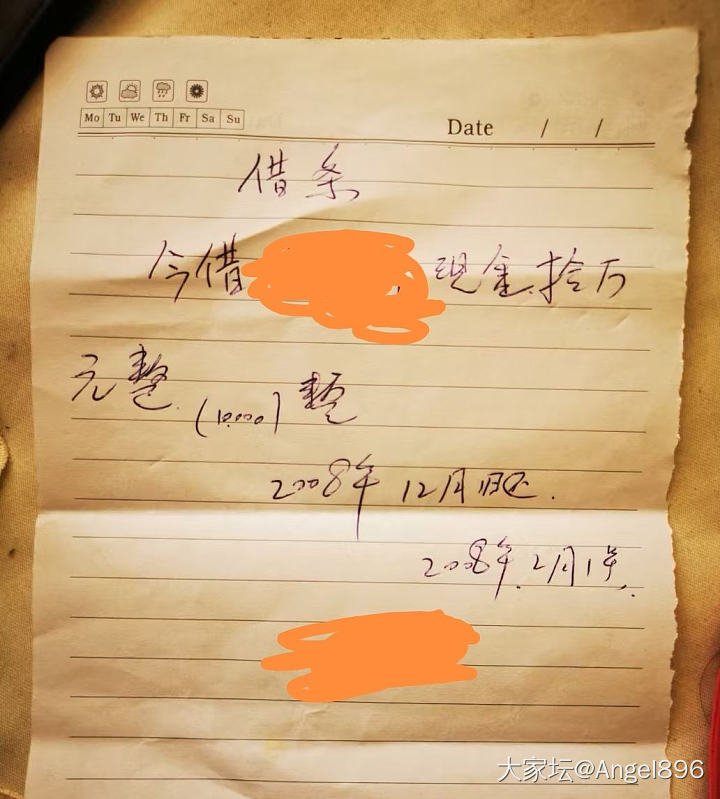 Mo Tu We Th Fr Sa Su
Date / /
借条
今借 现金拾万
元整 (10.000) 整
2008年12月归还.
2008年.2月1号.
大家坛@Angel896